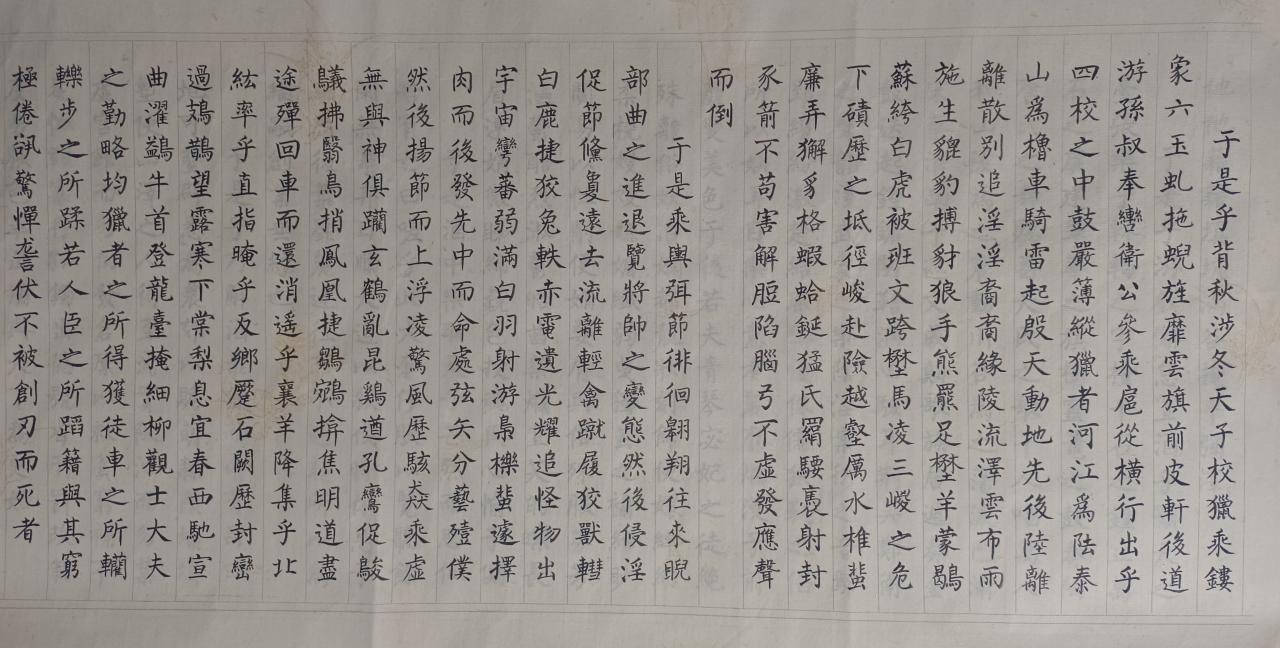 于是乎背秋涉冬天子校獵乘鏤
象六玉虬拖蜺旌靡雲旗前皮軒後道
游孫叔奉轡衛公參乘扈從橫行出乎
四校之中鼓嚴簿縱獵者河江爲阹泰
山爲櫓車騎雷起殷天動地先後陸離
離散別追淫淫裔裔緣陵流澤雲布雨
施生貔豹搏豺狼手熊羆足壄羊蒙鶡
蘇絝白虎被班文跨壄馬凌三嵕之危
下磧歷之坻徑峻赴險越壑厲水椎蜚
廉弄獬豸格蝦蛤鋋猛氏羂騕褭射封
豕箭不苟害解脰陷腦弓不虛發應聲
而倒
于是乘輿弭節徘徊翱翔往來睨
部曲之進退覽將帥之變態然後侵淫
促節儵敻遠去流離輕禽蹴履狡獸轊
白鹿捷狡兔軼赤電遺光耀追怪物出
宇宙彎蕃弱滿白羽射游梟櫟蜚遽擇
肉而後發先中而命處弦矢分藝殪僕
然後揚節而上浮凌驚風歷駭猋乘虛
無與神俱躪玄鶴亂昆雞遒孔鸞促鵔
鸃拂翳鳥捎鳳凰捷鵷鶵揜焦明道盡
途殫回車而還消遙乎襄羊降集乎北
紘率乎直指晻乎反鄉蹷石闕歷封巒
過鳷鵲望露寒下棠梨息宜春西馳宣
曲濯鷁牛首登龍臺掩細柳觀士大夫
之勤略均獵者之所得獲徒車之所轥
轢步之所蹂若人臣之所蹈籍與其窮
極倦䜲驚憚讋伏不被創刃而死者